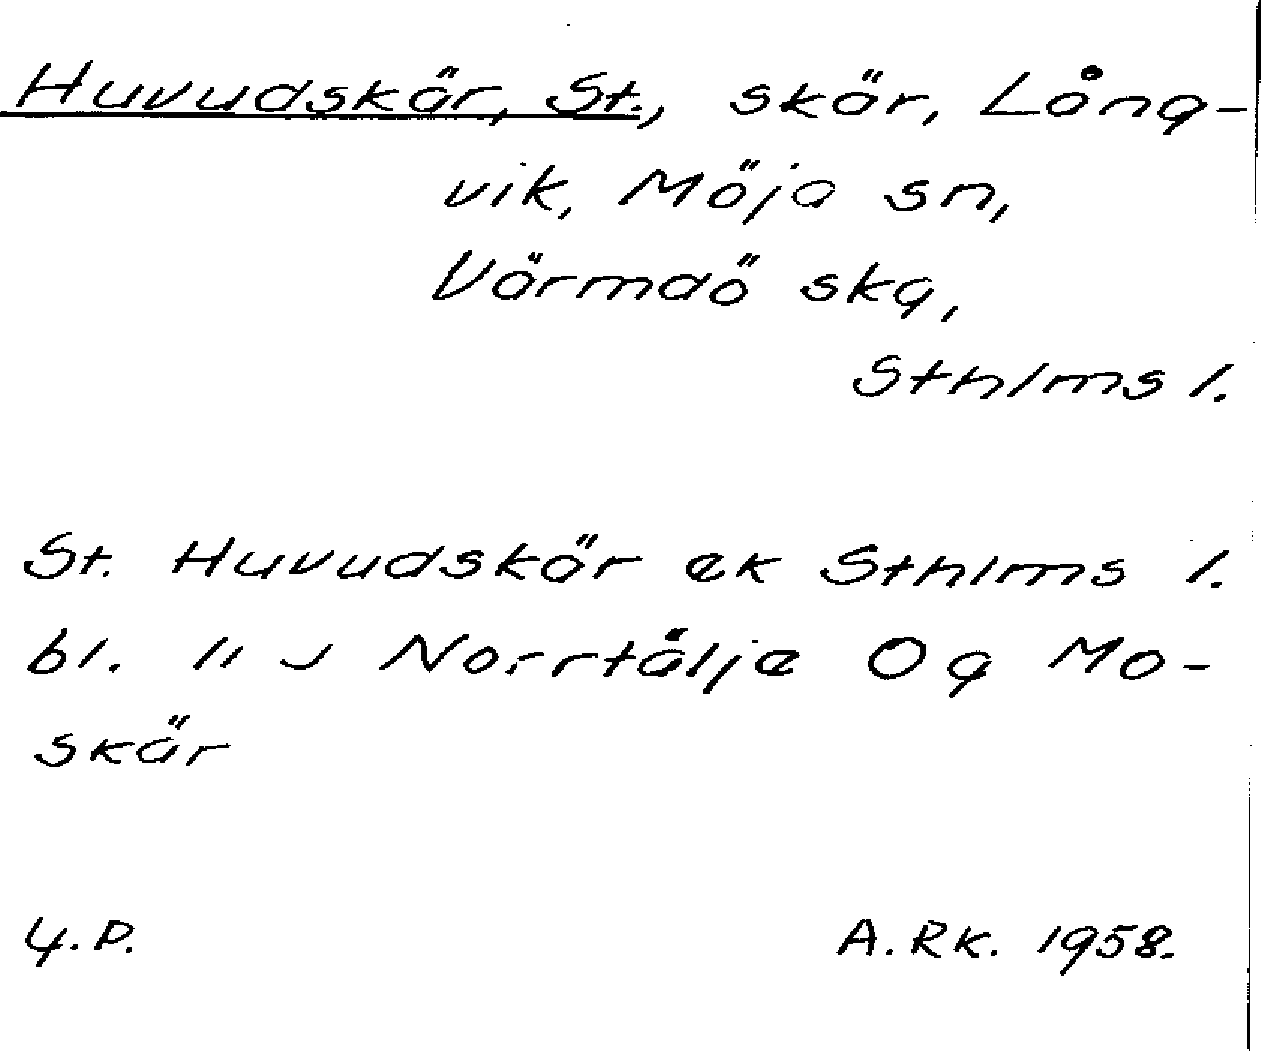 Huvudskär, St., skär, Lång-
vik, Möja sn,
Värmdö skg,
Sthlms l.
St. Huvudskär ek Sthlms l.
bl. 11 Norrtälje Og Mo-
skär
4.D.
A.RK. 1958.